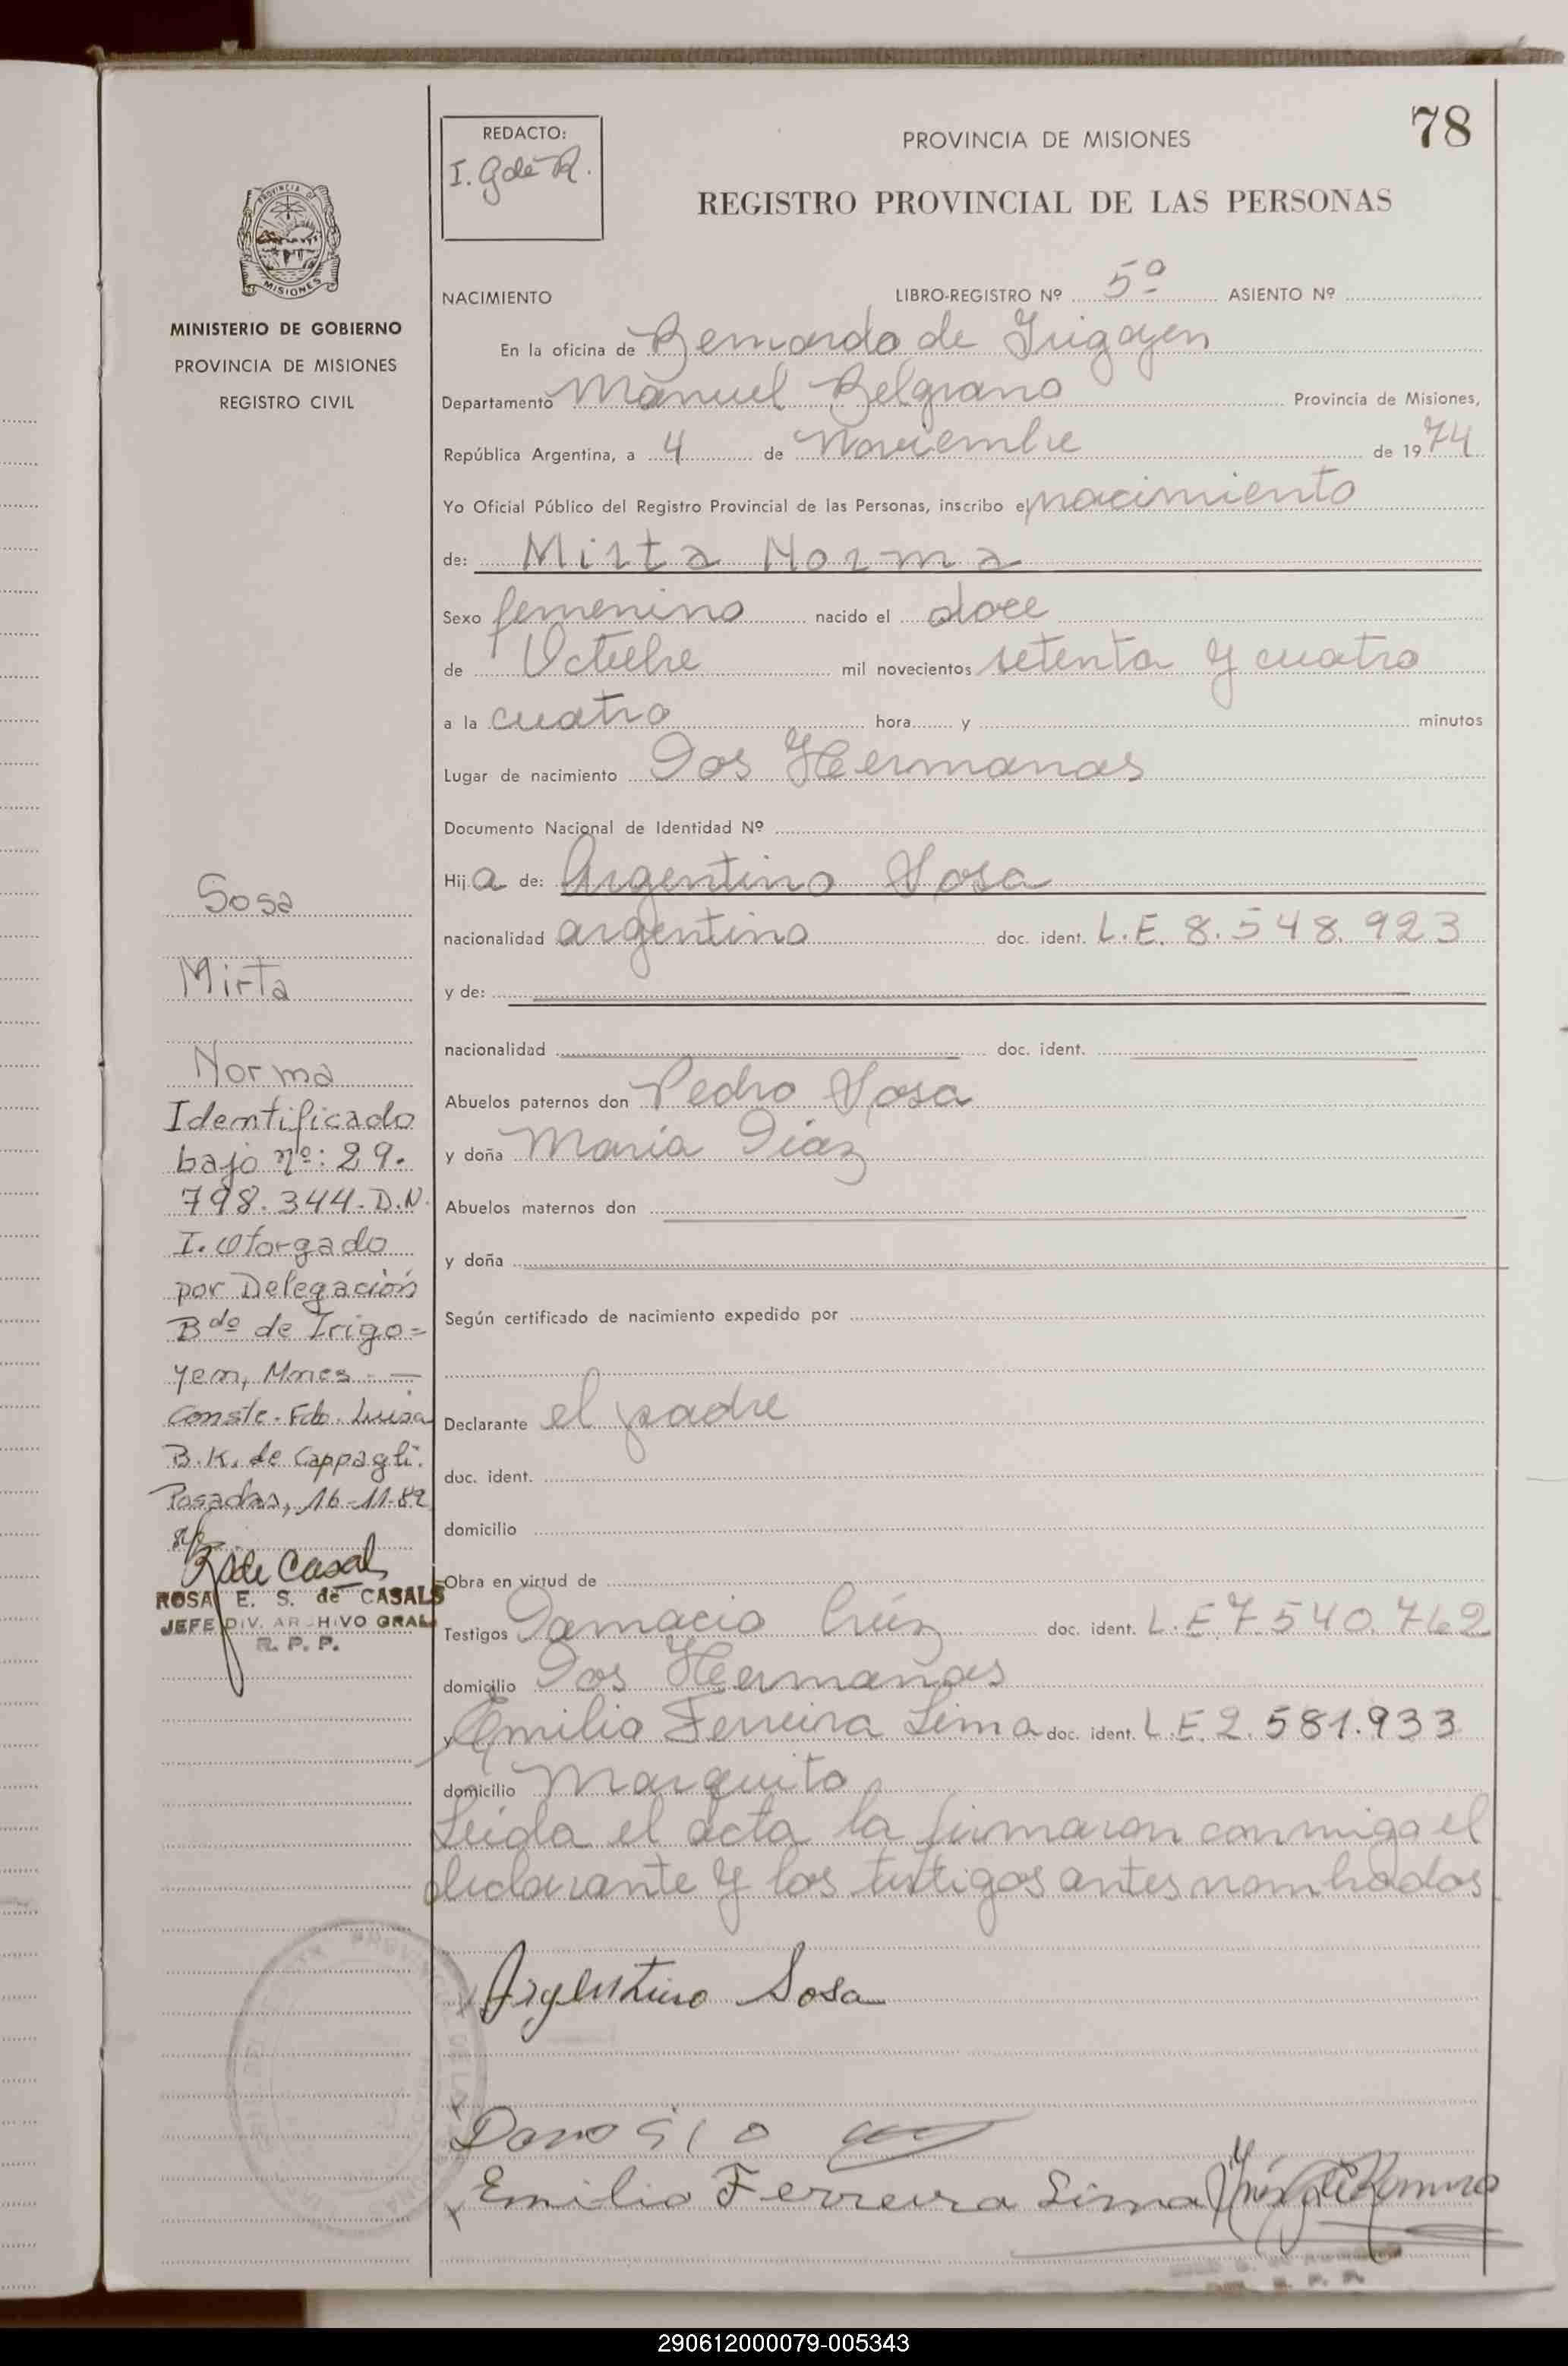 78
REDACTO:
I. G de R.
PROVINCIA DE MISIONES
REGISTRO PROVINCIAL DE LAS PERSONAS
NACIMIENTO LIBRO-REGISTRO Nº 5º ASIENTO Nº
En la oficina de Bernardo de Irigoyen
Departamento Manuel Belgrano Provincia de Misiones,
República Argentina, a 4 de Noviembre de 1974
Yo Oficial Público del Registro Provincial de las Personas, inscribo el nacimiento
de: Mirta Norma
Sexo femenino nacido el doce
de Octubre mil novecientos setenta y cuatro
a la cuatro hora y minutos
Lugar de nacimiento Dos Hermanas
Documento Nacional de Identidad Nº
Hija de: Argentino Sosa
nacionalidad argentino doc. ident. L.E. 8.548.923
y de:
nacionalidad doc. ident.
Abuelos paternos don Pedro Sosa
y doña María Diaz
Abuelos maternos don
y doña
Según certificado de nacimiento expedido por
Declarante el padre
doc. ident.
domicilio
Obra en virtud de
Testigos Damacio Crúz doc. ident. L.E. 7.540.762
domicilio Dos Hermanas
y Emilio Ferreira Lima doc. ident. L.E. 2.581.933
domicilio Marquito
Leída el acta la firmaron conmigo el
declarante y los testigos antes nombrados
Argentino Sosa
Emilio Ferreira Lima
PROVINCIA DE MISIONES
MINISTERIO DE GOBIERNO
PROVINCIA DE MISIONES
REGISTRO CIVIL
Sosa
Mirta
Norma
Identificado
bajo nº: 29.
798.344. D.N.
I. Otorgado
por Delegación
Bdo de Irigo=
yen, Mnes. —
Conste. Fdo. Luisa
B. K. de Cappagli.
Posadas, 16-11-82
ROSA E. S. de CASALS
JEFE DIV. ARCHIVO GRAL
R. P. P.
290612000079-005343